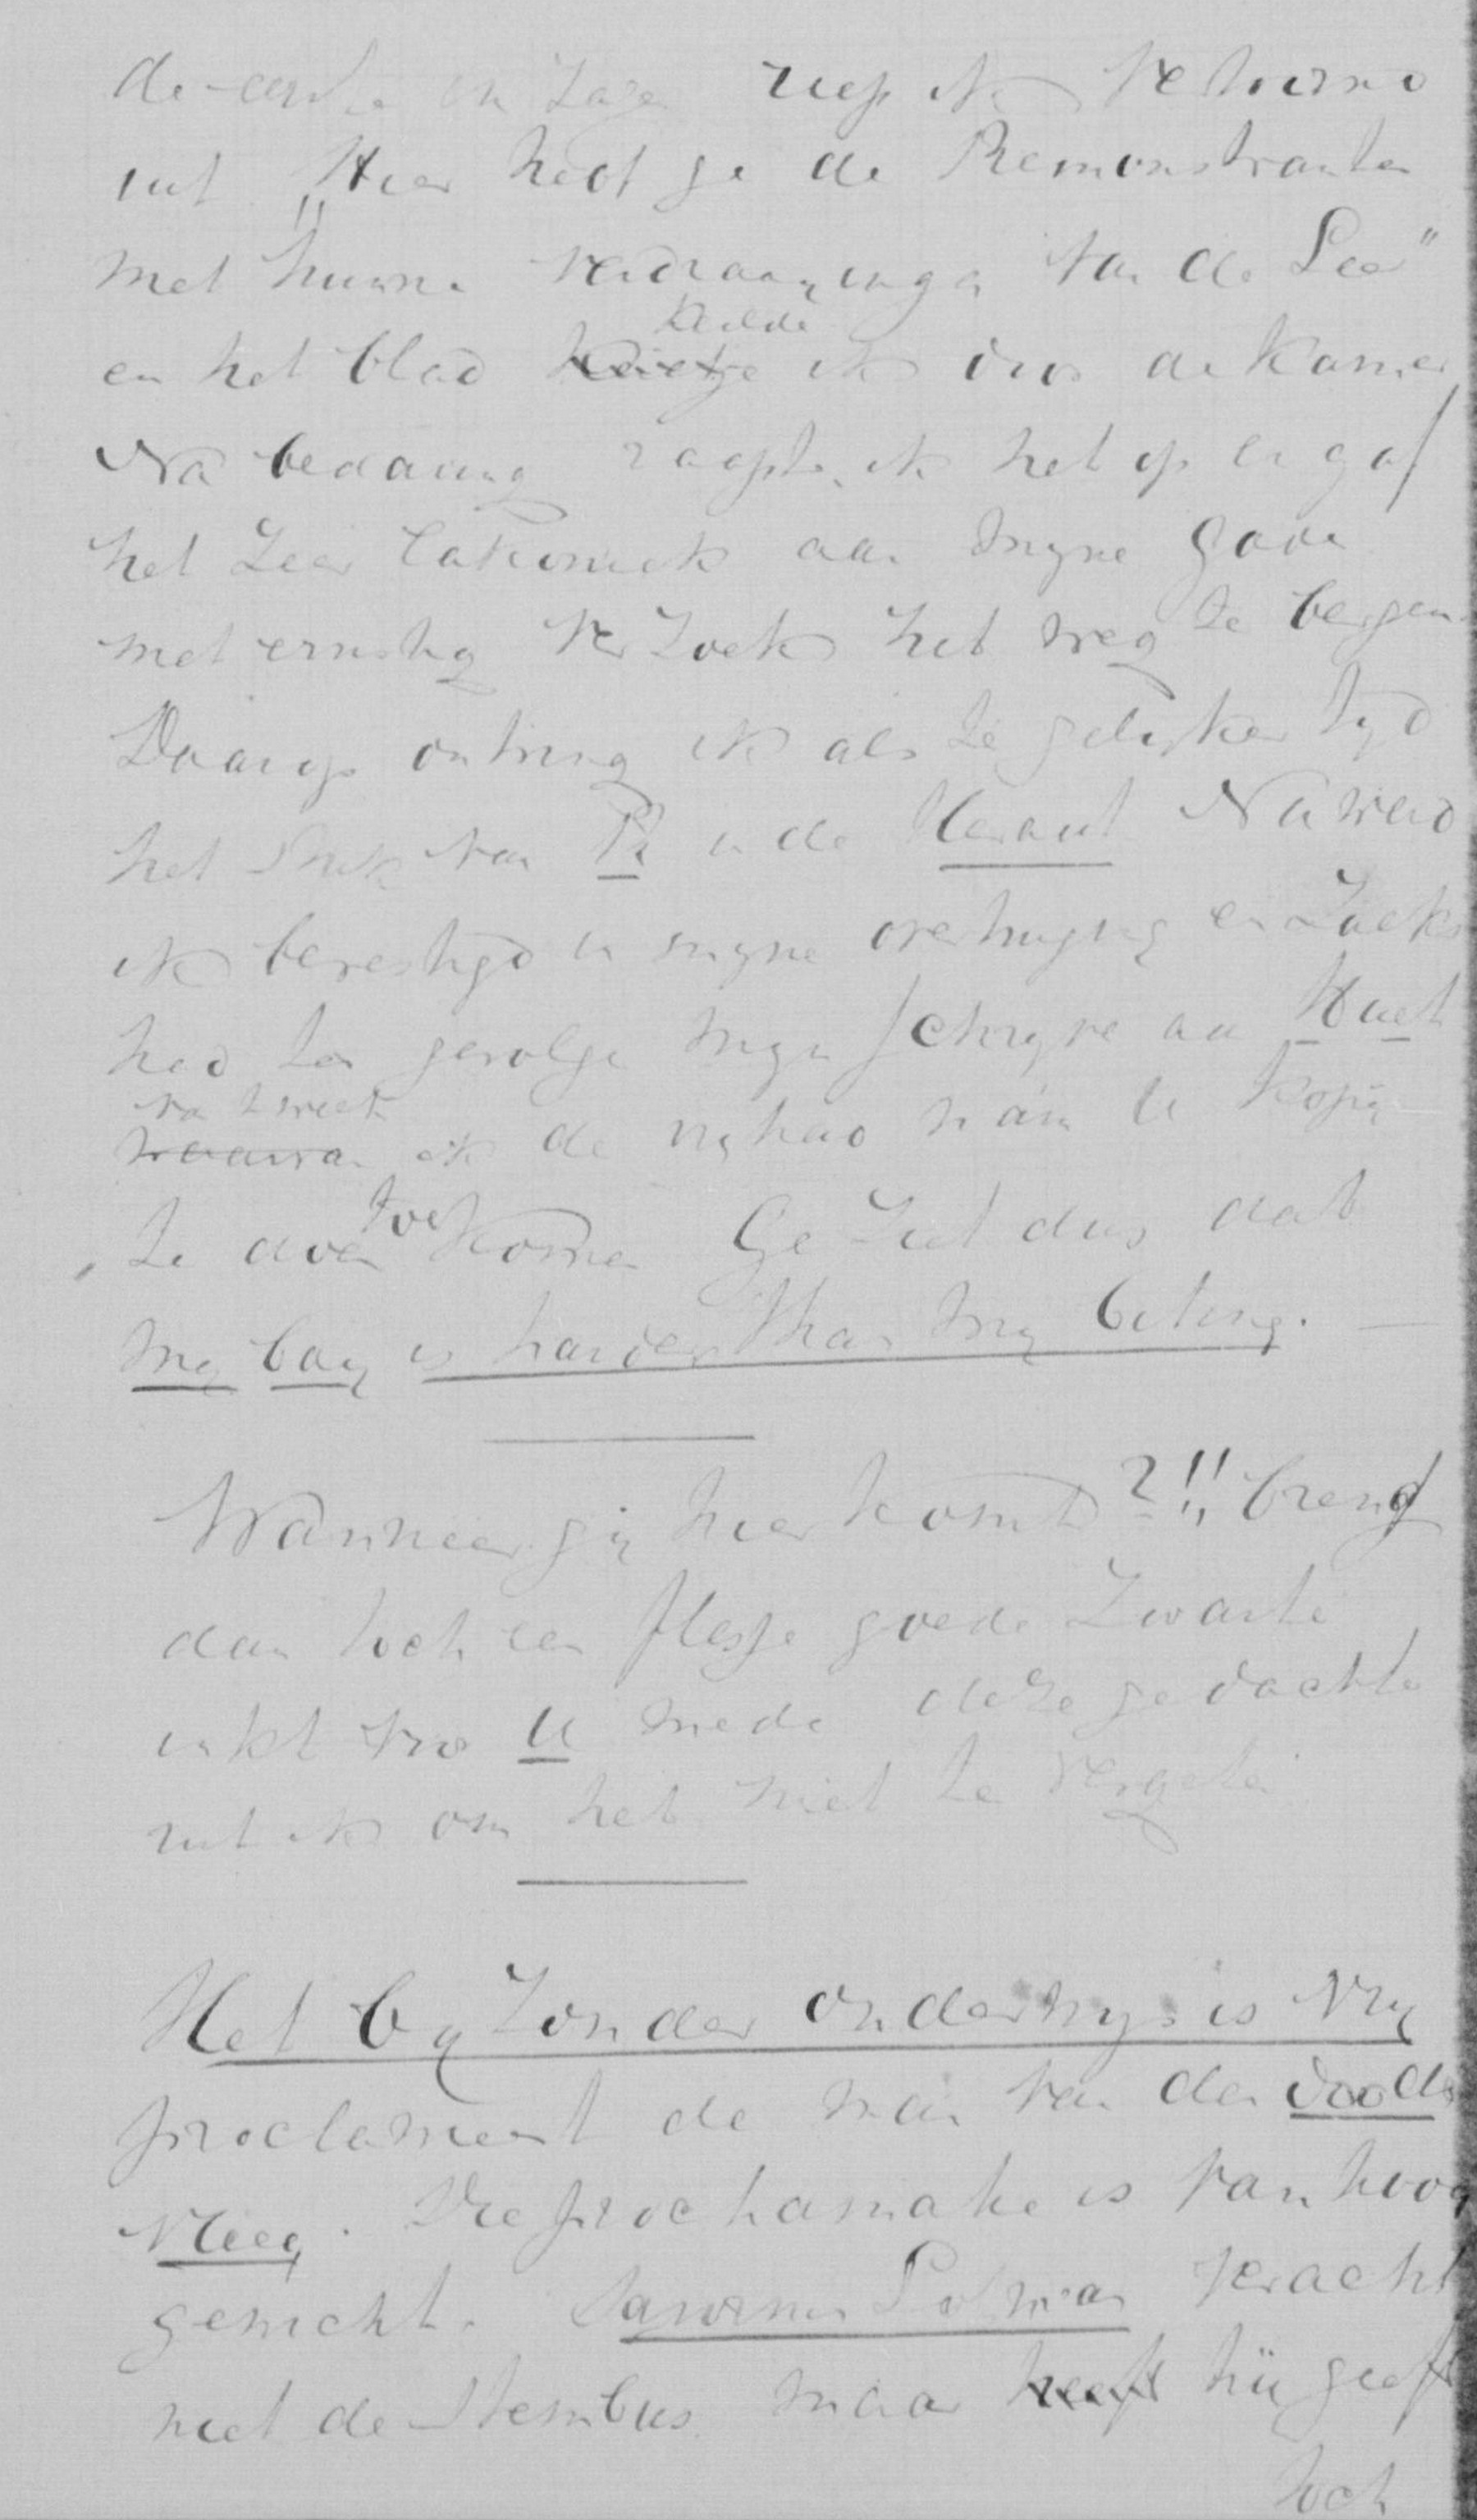 de eerste en zag riep ik verwoed
uit „Hier hebt ge de Remonstranten
met hunne verdraaingen van de Leer"
en het blad keilde ik door de kamer
Na bedaring raapte ik het op en gaf
het zeer lakoniek aan myne gade
met ernstig verzoek het weg te bergen
Daarop ontving ik als te gelyker tyd
het stuk van R in de Heraut Nu werd
ik bevestigd in myne overtuiging en zoek
had ten gevolge myn schryve aan Huet
ik de vryheid nam U kopij
te doen toekomen Ge ziet dus dat
my bay is harder than my biting. —
Wanneer gij hier komt?!! breng
dan toch een flesje goede zwarte
inkt voor U mede deze gedachte
uit ik om het niet te vergeten
Het byzonder onderwys is vry
proclameert de man van den doode
vlieg. Die proclamatie is van hoog
gewicht. Savornin Lohman veracht
niet de stembus maar heeft hij geeft
toch